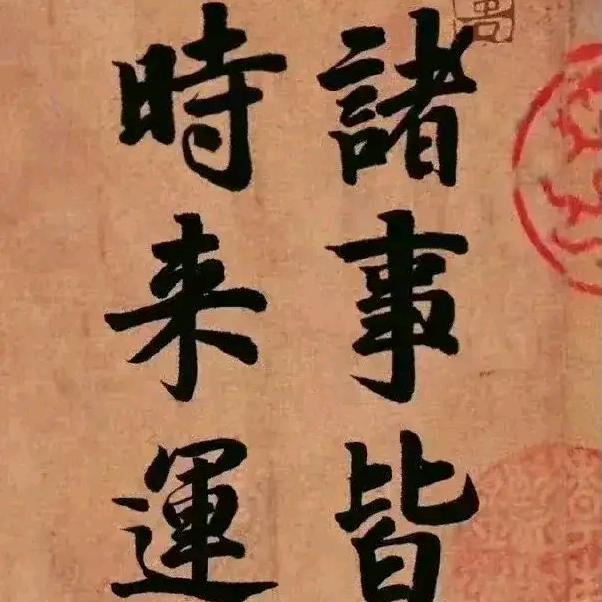 諸事皆
時来運